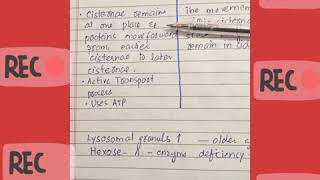 REC
• Cisternae remains
at one place &
proteins move forward
from earlier
cisternae to later
cisternae.
• Active Transport
process
• Uses ATP
The movement
cisternae
remain in
Lysosomal granules ↑ — older
Hexose - A - enzyme deficiency
REC
REC
REC